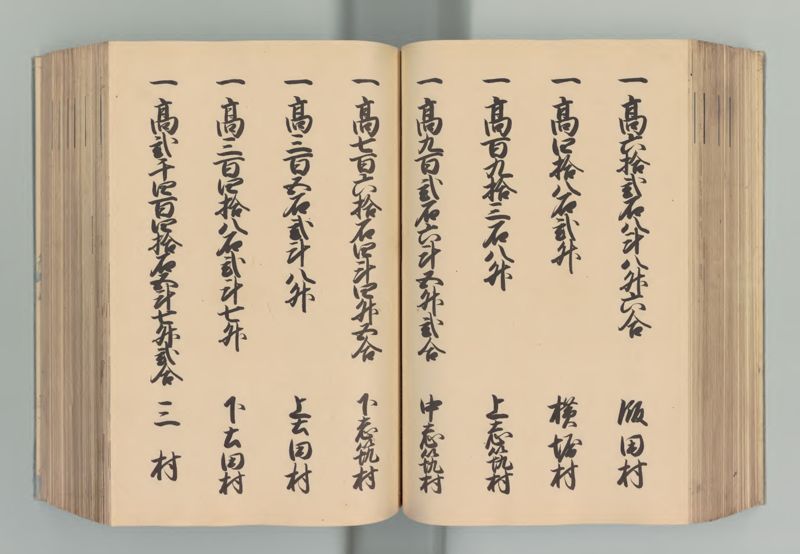 一高六拾弐石八斗八升六合 飯田村
一高四拾八石弐升 横堀村
一高百九拾三石八升 上志筑村
一高九百弐石六斗五升弐合 中志筑村
一高七百六拾石四斗四升五合 下志筑村
一高三百五石弐斗八升 上土田村
一高三百四拾八石弐斗七升 下土田村
一高弐千四百四拾石五斗七升弐合 三村